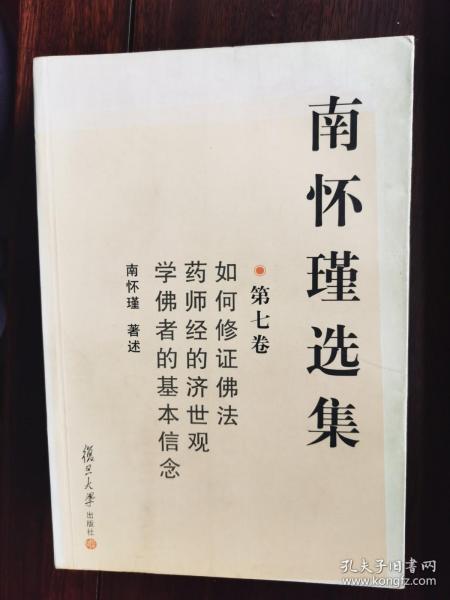 南怀瑾选集
第七卷
如何修证佛法
药师经的济世观
学佛者的基本信念
南怀瑾 著述
復旦大學出版社
孔夫子旧书网
www.kongfz.com